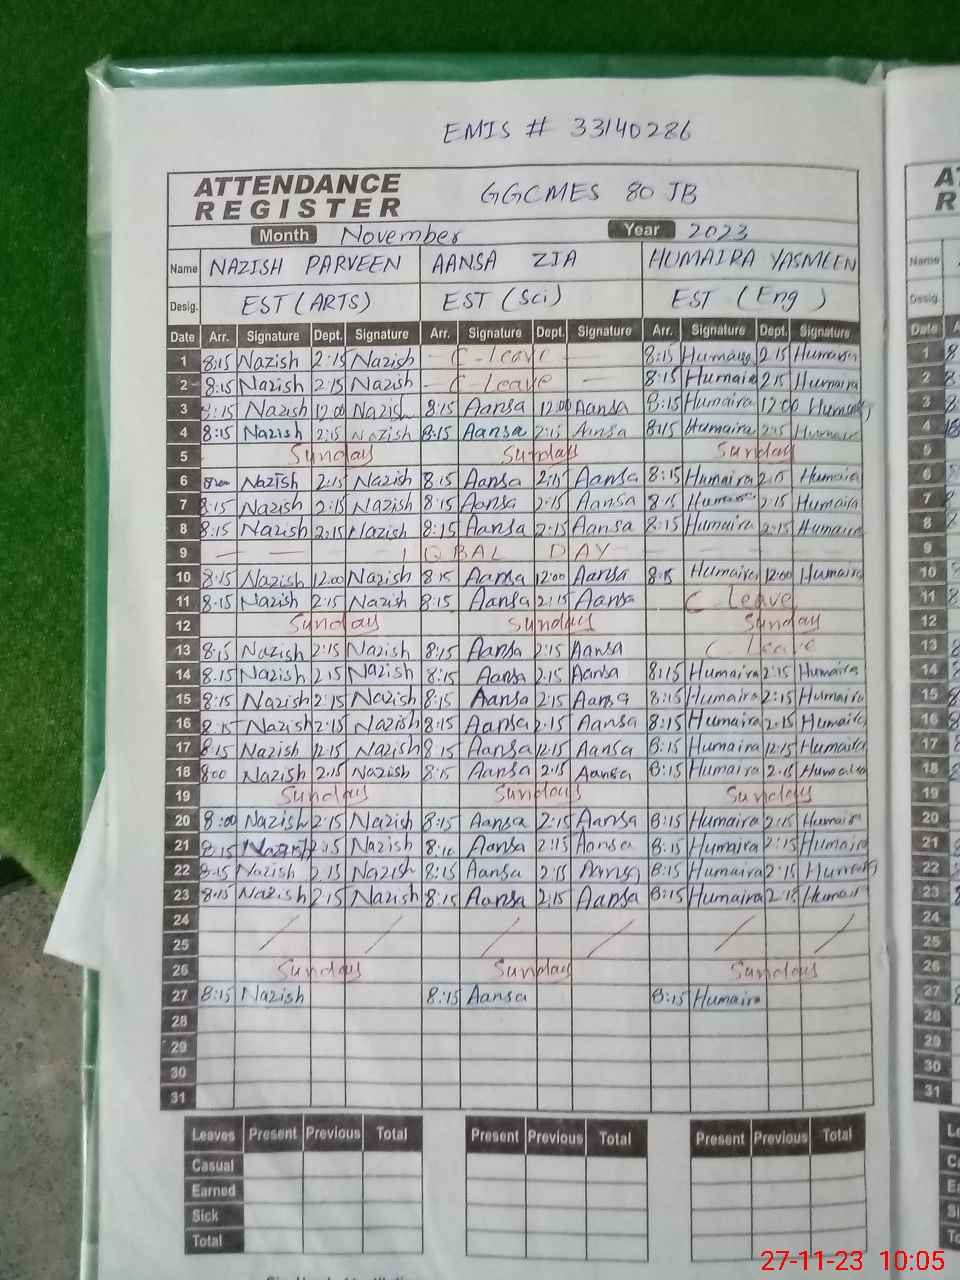 EMIS # 33140286
ATTENDANCE REGISTER GGCMES 80 JB
Month November Year 2023
Name NAZISH PARVEEN AANSA ZIA HUMAIRA YASMEEN
Desig. EST (ARTS) EST (Sci) EST (Eng)
Date Arr. Signature Dept. Signature Arr. Signature Dept. Signature Arr. Signature Dept. Signature
1 8:15 Nazish 2:15 Nazish C-leave 8:15 Humaira 2:15 Humaira
2 8:15 Nazish 2:15 Nazish C-Leave 8:15 Humaira 2:15 Humaira
3 8:15 Nazish 12:00 Nazish 8:15 Aansa 12:00 Aansa 8:15 Humaira 12:00 Humaira
4 8:15 Nazish 2:15 Nazish 8:15 Aansa 2:15 Aansa 8:15 Humaira 2:15 Humaira
5 Sunday Sunday Sunday
6 Nazish 2:15 Nazish 8:15 Aansa 2:15 Aansa 8:15 Humaira 2:15 Humaira
7 8:15 Nazish 2:15 Nazish 8:15 Aansa 2:15 Aansa 8:15 Humaira 2:15 Humaira
8 8:15 Nazish 2:15 Nazish 8:15 Aansa 2:15 Aansa 8:15 Humaira 2:15 Humaira
9 IQBAL DAY
10 8:15 Nazish 12:00 Nazish 8:15 Aansa 12:00 Aansa 8:15 Humaira 12:00 Humaira
11 8:15 Nazish 2:15 Nazish 8:15 Aansa 2:15 Aansa C-Leave
12 Sunday Sunday Sunday
13 8:15 Nazish 2:15 Nazish 8:15 Aansa 2:15 Aansa C-Leave
14 8:15 Nazish 2:15 Nazish 8:15 Aansa 2:15 Aansa 8:15 Humaira 2:15 Humaira
15 8:15 Nazish 2:15 Nazish 8:15 Aansa 2:15 Aansa 8:15 Humaira 2:15 Humaira
16 8:15 Nazish 2:15 Nazish 8:15 Aansa 2:15 Aansa 8:15 Humaira 2:15 Humaira
17 8:15 Nazish 12:15 Nazish 8:15 Aansa 12:15 Aansa 8:15 Humaira 12:15 Humaira
18 8:00 Nazish 2:15 Nazish 8:15 Aansa 2:15 Aansa 8:15 Humaira 2:15 Humaira
19 Sunday Sunday Sunday
20 8:00 Nazish 2:15 Nazish 8:15 Aansa 2:15 Aansa 8:15 Humaira 2:15 Humaira
21 8:15 Nazish 2:15 Nazish Aansa 2:15 Aansa 8:15 Humaira 2:15 Humaira
22 8:15 Nazish 2:15 Nazish 8:15 Aansa 2:15 Aansa 8:15 Humaira 2:15 Humaira
23 8:15 Nazish 2:15 Nazish 8:15 Aansa 2:15 Aansa 8:15 Humaira 2:15 Humaira
24
25
26 Sunday Sunday Sunday
27 8:15 Nazish 8:15 Aansa 8:15 Humaira
28
29
30
31
Leaves Present Previous Total Present Previous Total Present Previous Total
Casual
Earned
Sick
Total
27-11-23 10:05